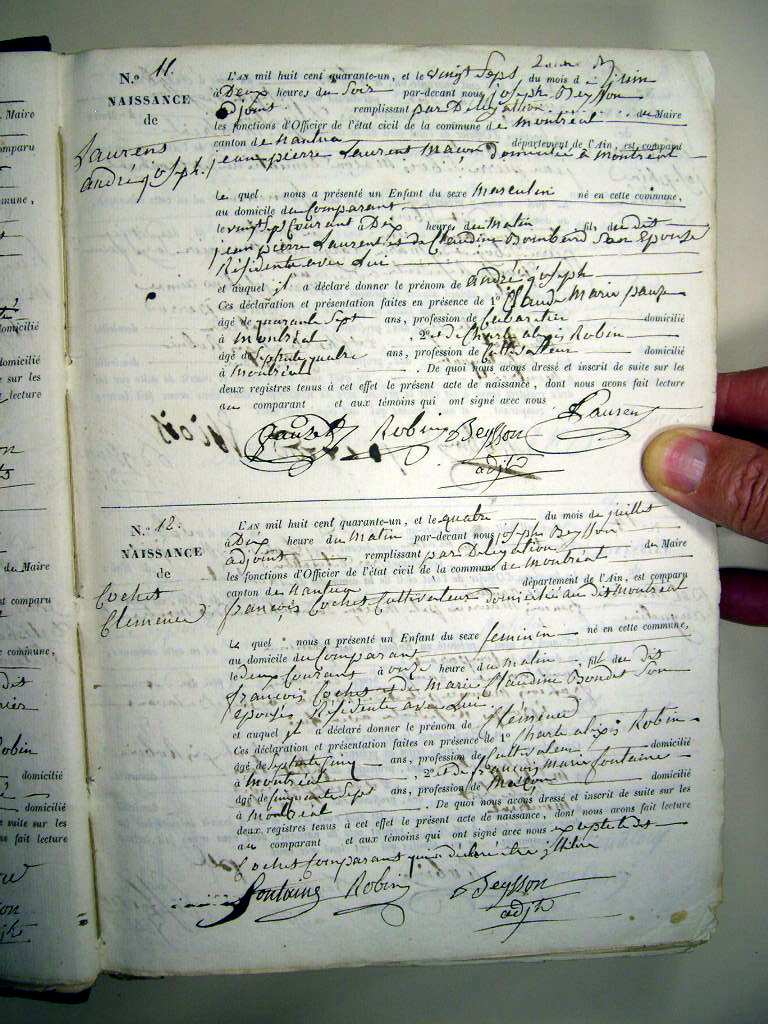 Maire
comparu
mmune,
domicilié
domicilié
te sur les
lecture
du Maire
comparu
commune,
domicilié
domicilié
suite sur les
fait lecture
N.º 11.
NAISSANCE
de
Laurent
andré joseph.
L'AN mil huit cent quarante-un, et le vingt sept du mois de juin
à Deux heures du Soir par-devant nous joseph Beysson
adjoint remplissant par Délégation
les fonctions d'Officier de l'état civil de la commune de Montréal du Maire
canton de Nantua département de l'Ain, est comparu
jean pierre Laurent Macon domicilié à Montréal
Le quel nous a présenté un Enfant du sexe Masculin né en cette commune,
au domicile du Comparant
le vingt Sept Courant à Dix heures du Matin fils du dit
jean pierre Laurent et de Claudine Bombard Son Epouse
Résidente avec Lui
et auquel il a déclaré donner le prénom de andré joseph
Ces déclaration et présentation faites en présence de 1º Claude Marie
âgé de quarante Sept ans, profession de Cabaretier domicilié
à Montréal , 2º et de Charle alexis Robin
âgé de Septante quatre ans, profession de Cultivateur domicilié
à Montréal . De quoi nous avons dressé et inscrit de suite sur les
deux registres tenus à cet effet le présent acte de naissance, dont nous avons fait lecture
au comparant et aux témoins qui ont signé avec nous
Robin Beysson Laurent
adjt
N.º 12.
NAISSANCE
de
Cochet
Clémence
L'AN mil huit cent quarante-un, et le quatre du mois de juillet
à Dix heure du Matin par-devant nous joseph Beysson
adjoint remplissant par Délégation du Maire
les fonctions d'Officier de l'état civil de la commune de Montréal
canton de Nantua département de l'Ain, est comparu
françois Cochet Cultivateur domicilié au dit Montréal
Le quel nous a présenté un Enfant du sexe féminin né en cette commune,
au domicile du Comparant
le deux Courant à onze heure du Matin, fille du dit
françois Cochet et de Marie Claudine Bondet Son
epouse Résidente avec Lui
et auquel il a déclaré donner le prénom de Clémence
Ces déclaration et présentation faites en présence de 1º Charle alexis Robin
âgé de Septante cinq ans, profession de Cultivateur domicilié
à Montréal , 2º et de françois Marie fontaine
âgé de Cinquante Sept ans, profession de Maçon domicilié
à Montréal . De quoi nous avons dressé et inscrit de suite sur les
deux registres tenus à cet effet le présent acte de naissance, dont nous avons fait lecture
au comparant et aux témoins qui ont signé avec nous excepté le dit
Cochet Comparant qui a déclaré être illitéré
fontaine Robin Beysson
adjt